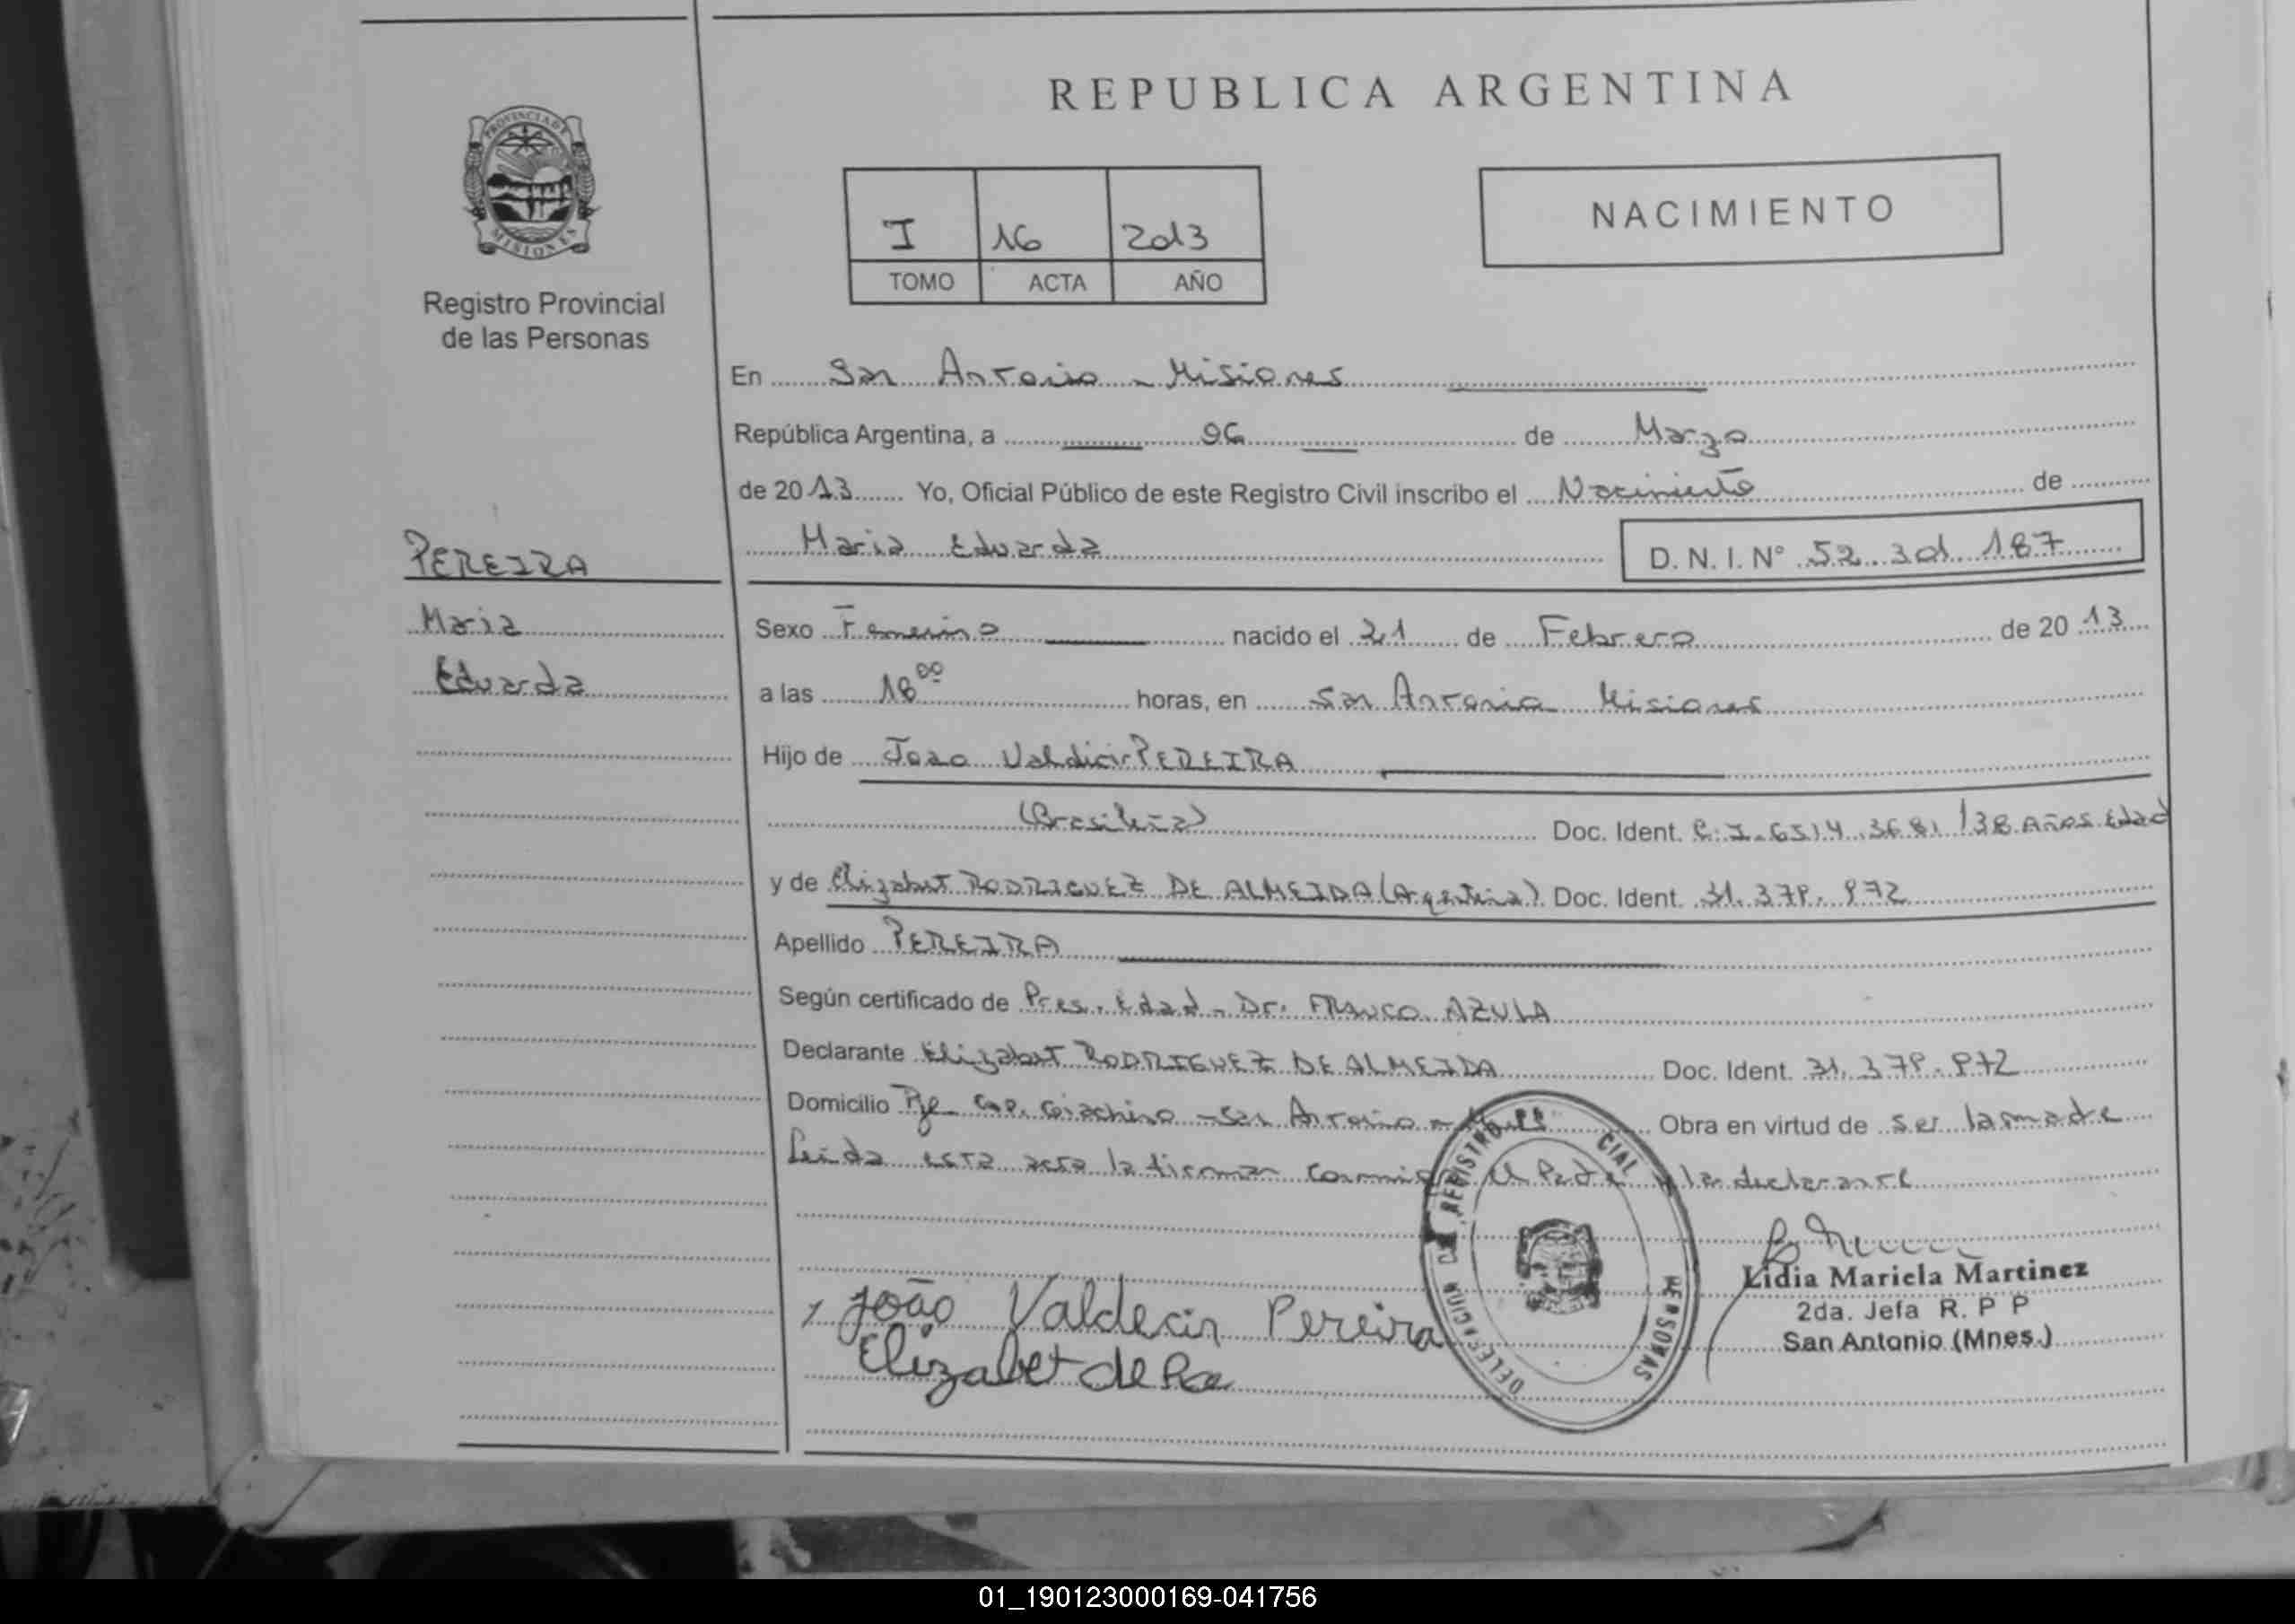 REPUBLICA ARGENTINA
PROVINCIA DE
MISIONES
Registro Provincial
de las Personas
I 16 2013
TOMO ACTA AÑO
NACIMIENTO
En San Antonio - Misiones
República Argentina, a 06 de Marzo
de 2013 Yo, Oficial Público de este Registro Civil inscribo el Nacimiento de
Maria Eduarda D. N. I. N° 52.301.187
PEREIRA
Maria
Eduarda
Sexo Femenino nacido el 21 de Febrero de 2013
a las 18 00 horas, en San Antonio Misiones
Hijo de Joao Valdicir PEREIRA
(Brasileña) Doc. Ident. C.I. 6514.3681 / 38 Años Edad
y de Elizabet RODRIGUEZ DE ALMEIDA (Argentina) Doc. Ident. 31.379.972
Apellido PEREIRA
Según certificado de Pres. Edad - Dr. FRANCO AZULA
Declarante Elizabet RODRIGUEZ DE ALMEIDA Doc. Ident. 31.379.972
Domicilio Pje Cap. Giachino - San Antonio - Obra en virtud de ser la madre
Leida esta acta la firman conmigo el Padre y la declarante
DELEGACION REGISTRO CIAL PERSONAS
João Valdecir Pereira
Elizabet de
Lidia Mariela Martinez
2da. Jefa R. P P
San Antonio (Mnes.)
01_190123000169-041756